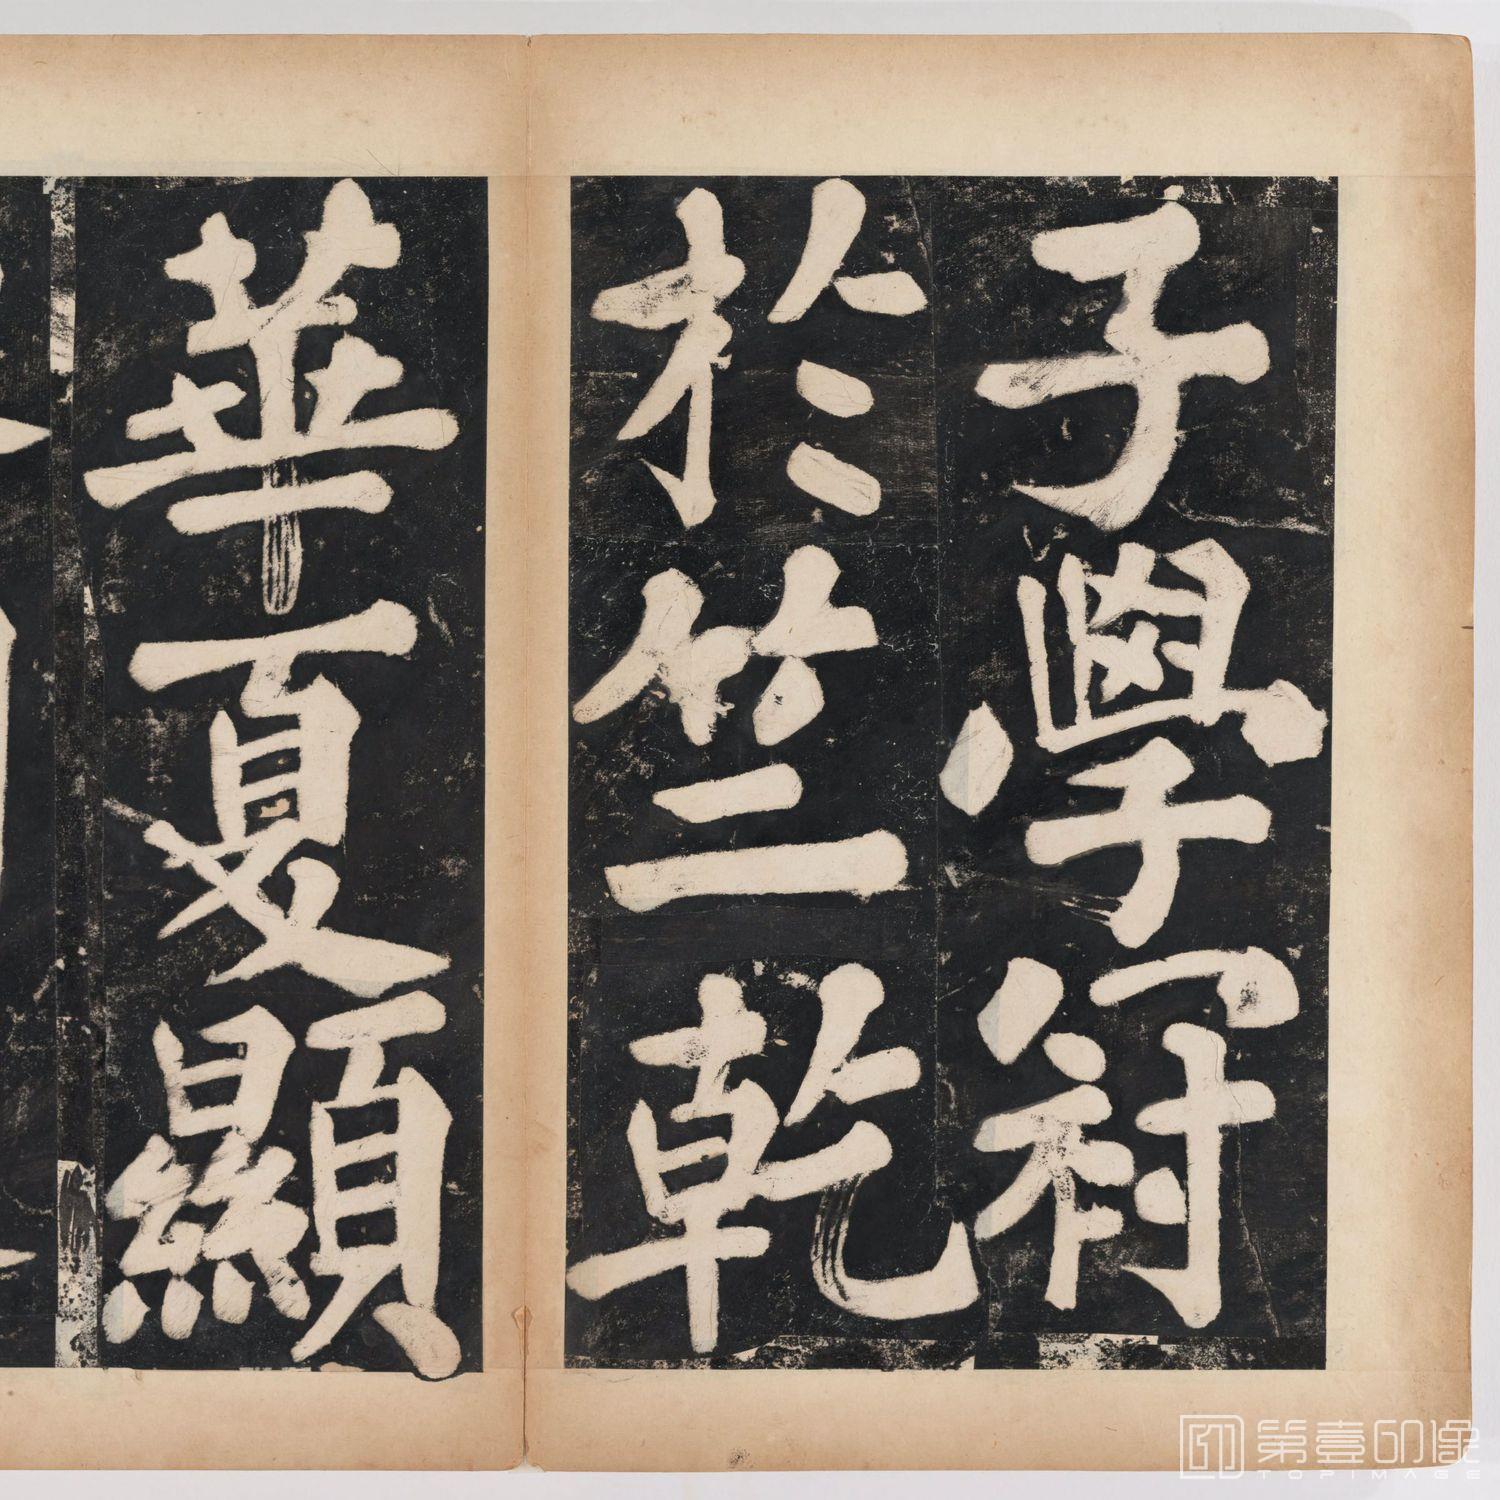 子學冠
於竺乾
華夏顯
第壹印像
TOPIMAGE